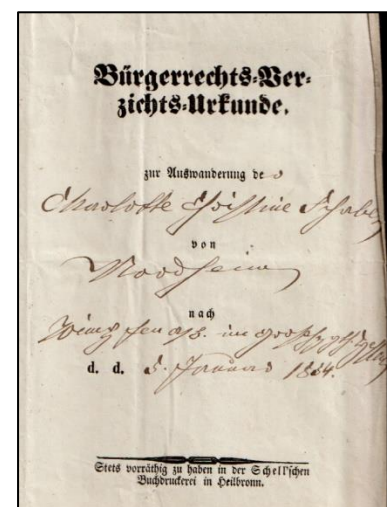 Bürgerrechts-Ver-
zichts-Urkunde.
zur Auswanderung de
Charlotte Christine
von
Nordheim
nach
im
d. d. 5. Januar 1854.
Stets vorräthig zu haben in der Schell'schen
Buchdruckerei in Heilbronn.